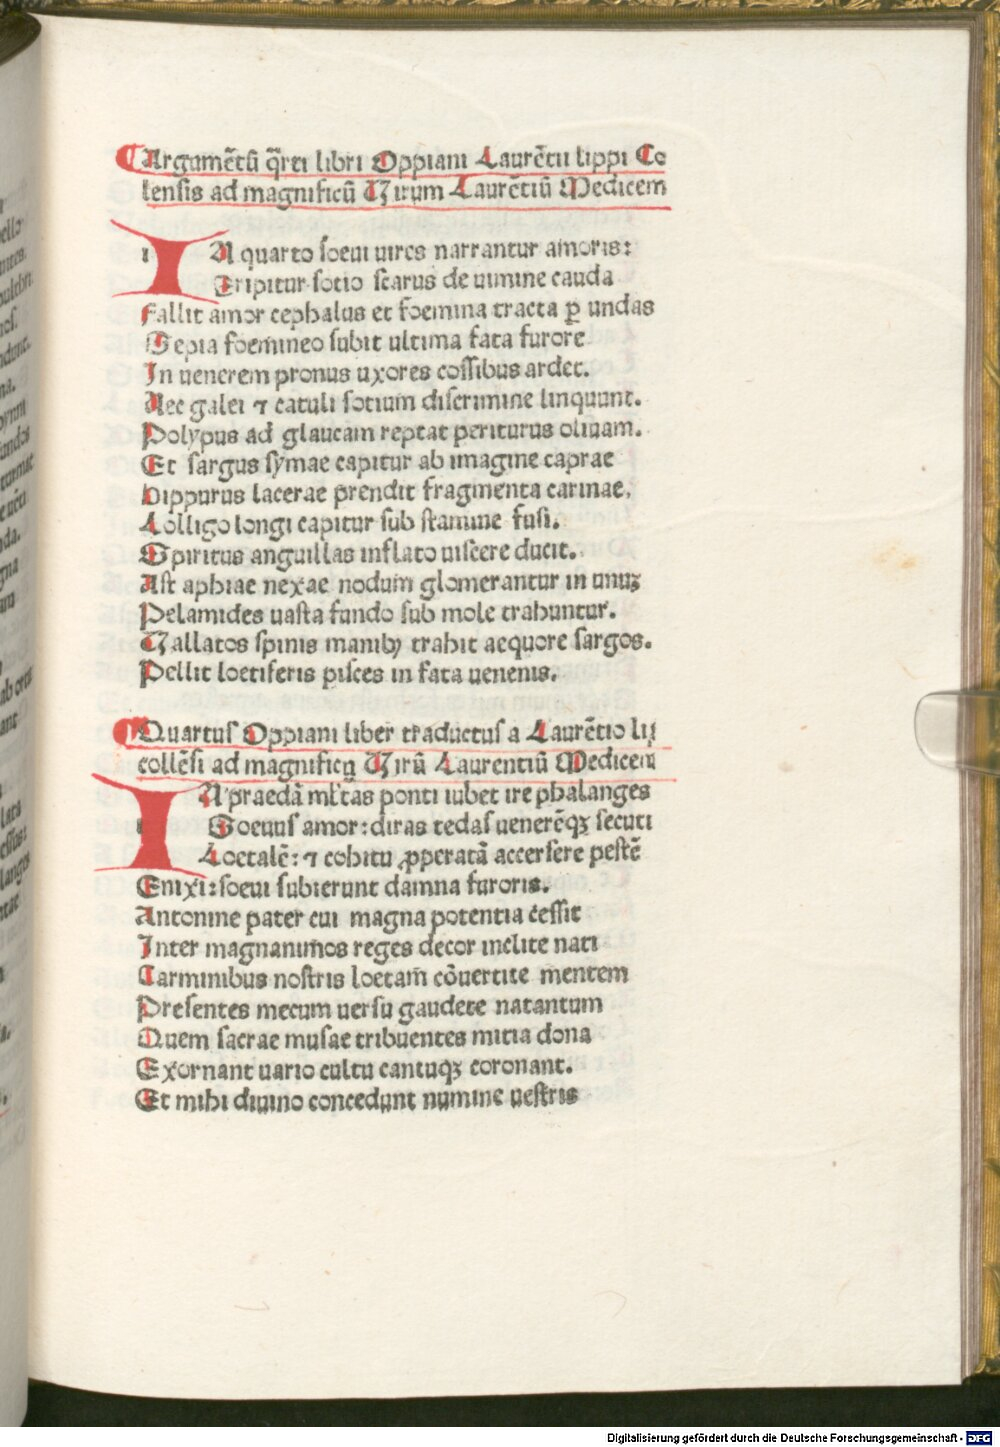 Argumētū q̄rti libri Oppiani Laurētii lippi Co
lensis ad magnificū Uirum Laurētiū Medicem
IN quarto soeui uires narrantur amoris:
Eripitur sotio scarus de uimine cauda
Fallit amor cephalus et foemina tracta ꝑ undas
Sepia foemineo subit ultima fata furore
In uenerem pronus uxores cossibus ardet.
Nec galei ⁊ catuli sotium discrimine linquunt.
Polypus ad glaucam reptat periturus oliuam.
Et sargus symae capitur ab imagine caprae
Hippurus lacerae prendit fragmenta carinae,
Lolligo longi capitur sub stamine fusi.
Spiritus anguillas inflato uiscere ducit.
Ast aphiae nexae nodum glomerantur in unuꝫ
Pelamides uasta fundo sub mole trahuntur.
Uallatos spinis maniby trahit aequore sargos.
Pellit loetiferis pisces in fata uenenis.
Quartus Oppiani liber traductus a Laurētio lij
collēsi ad magnificū Uirū Laurentiū Medicem
IN praedā ml'tas ponti iubet ire phalanges
Soeuus amor: diras tedas uenerēqꝫ secuti
Loetalē: ⁊ cobitu ꝓperatā accersere pestē
Enixi: soeui subierunt damna furoris.
Antonine pater cui magna potentia cessit
Inter magnanimos reges decor inclite nati
Carminibus nostris loetam cōuertite mentem
Presentes mecum uersu gaudete natantum
Quem sacrae musae tribuentes mitia dona
Exornant uario cultu cantuqꝫ coronant.
Et mihi diuino concedunt numine uestris
Digitalisierung gefördert durch die Deutsche Forschungsgemeinschaft - DFG